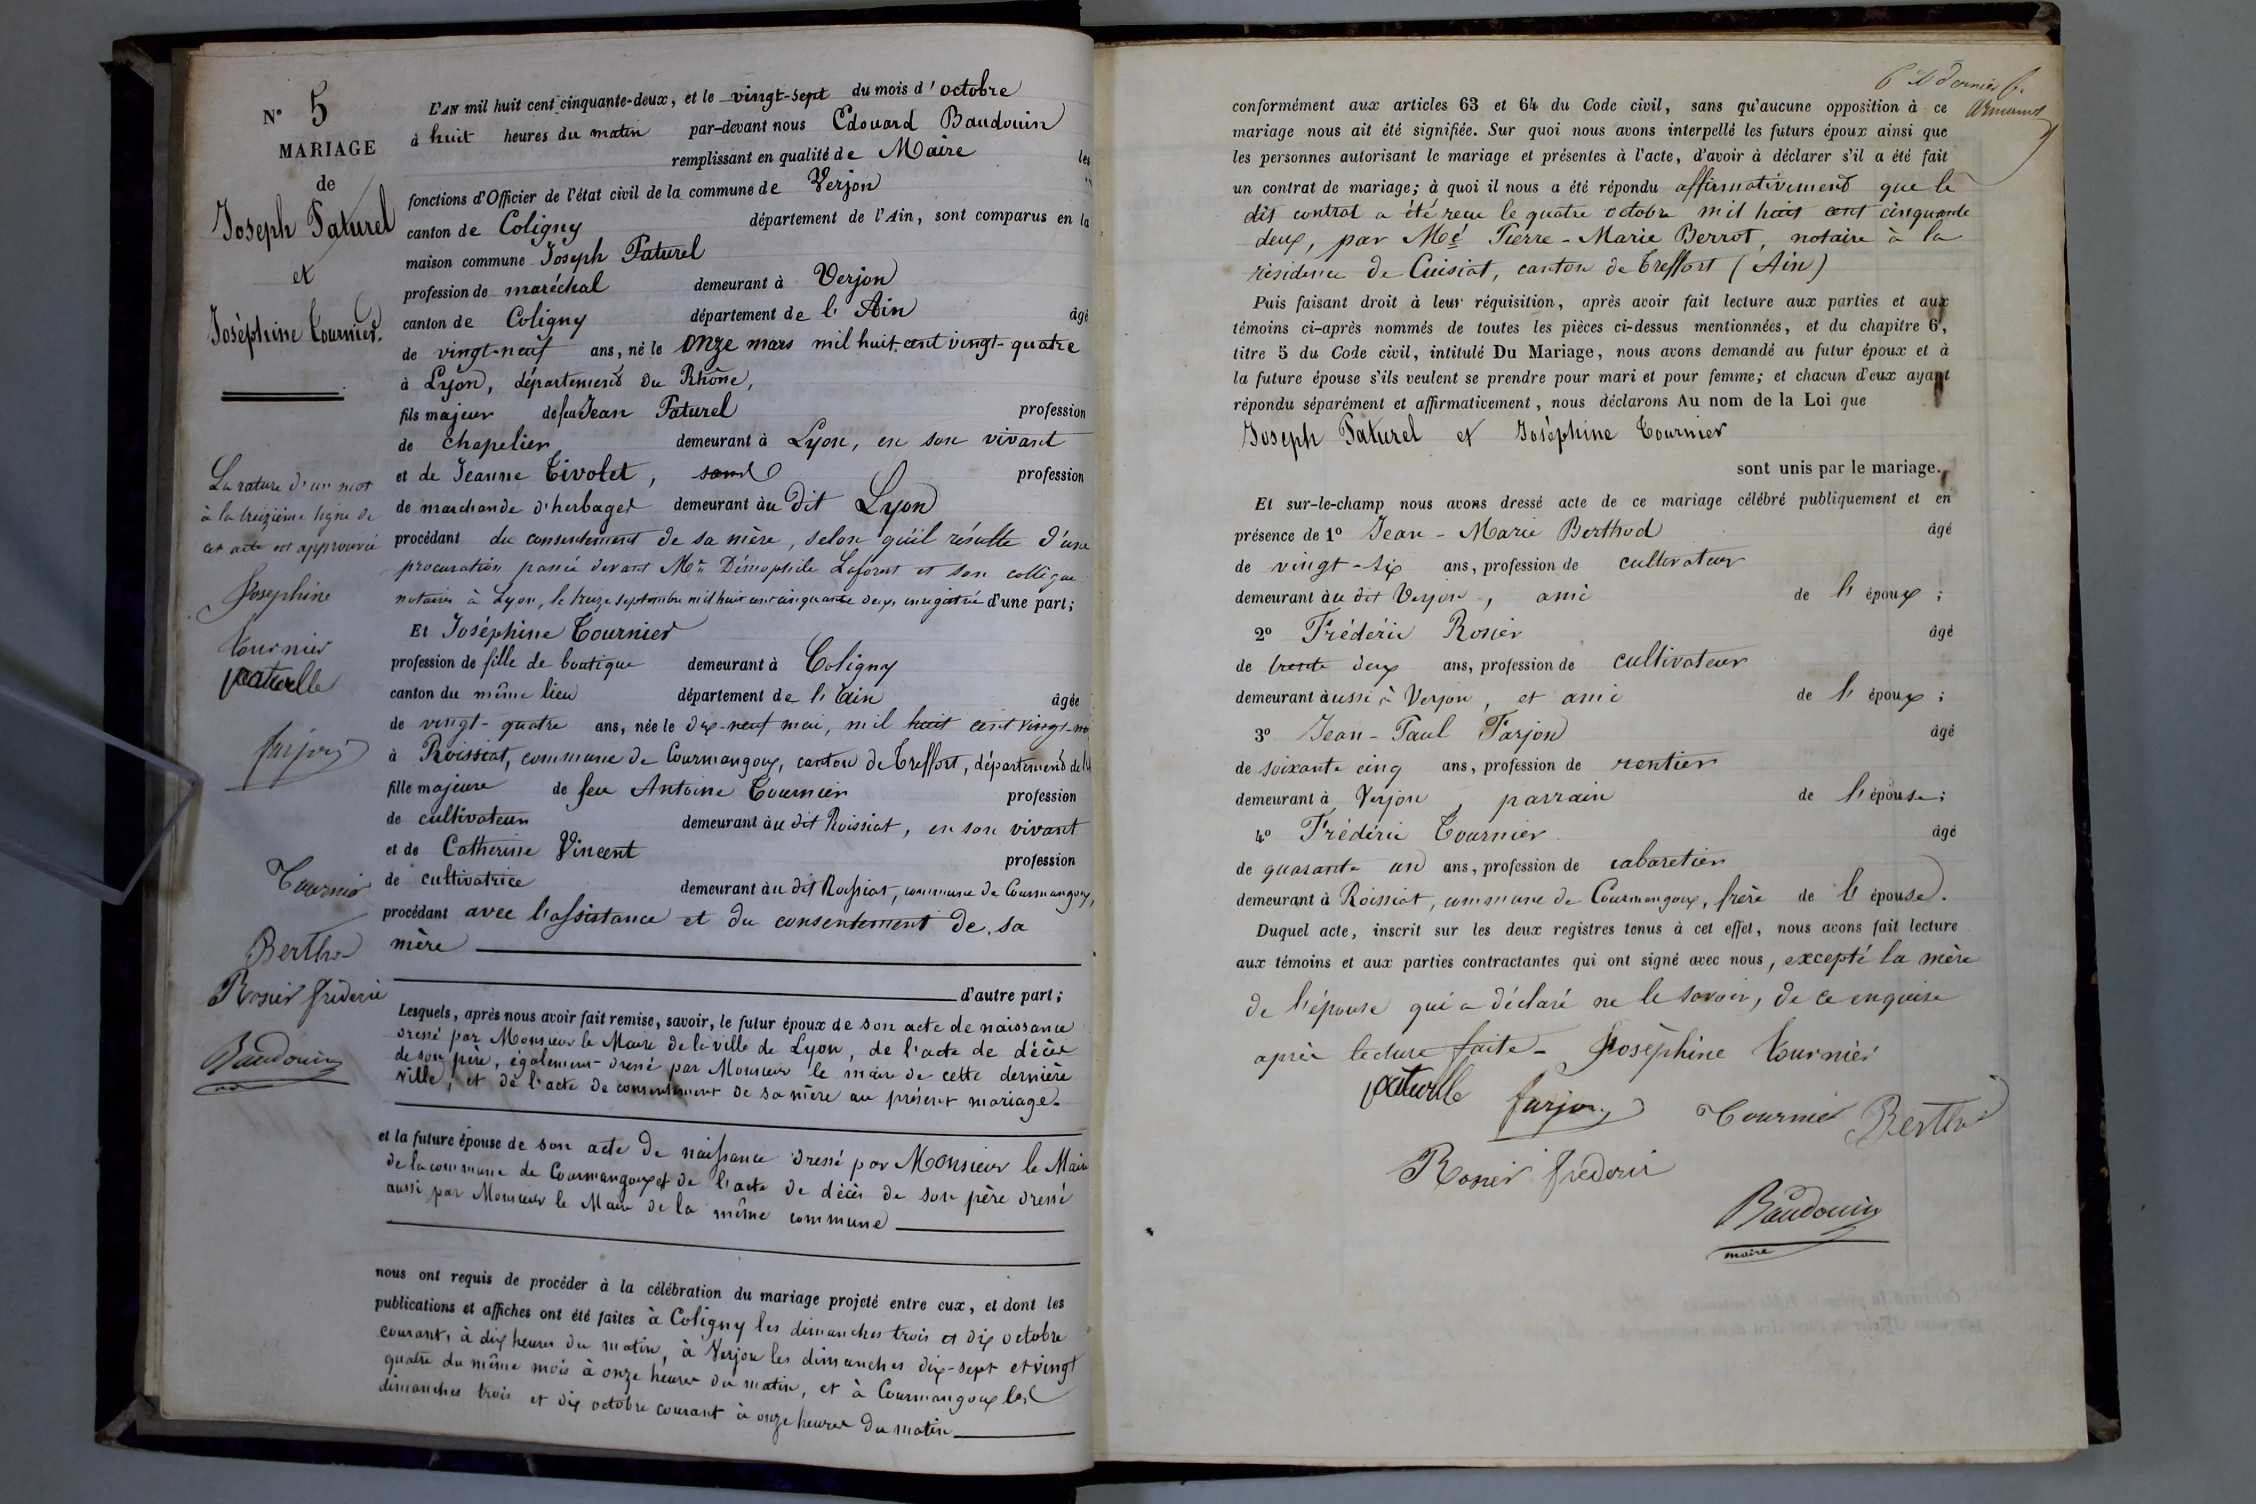 N° 5
MARIAGE
de
Joseph Paturel
et
Joséphine Tournier.
La rature d'un mot
à la treizième ligne de
cet acte est approuvée
Josephine
Tournier
paturelle
farjon
Tournier
Berthod
Rosier frederic
Baudouin
L'AN mil huit cent cinquante-deux, et le vingt-sept du mois d'octobre
à huit heures du matin par-devant nous Edouard Baudouin
remplissant en qualité de Maire les
fonctions d'Officier de l'état civil de la commune de Verjon
canton de Coligny département de l'Ain, sont comparus en la
maison commune Joseph Paturel
profession de maréchal demeurant à Verjon
canton de Coligny département de l'Ain âgé
de vingt-neuf ans, né le onze mars mil huit-cent vingt-quatre
à Lyon, département du Rhône,
fils majeur de feu Jean Paturel profession
de chapelier demeurant à Lyon, en son vivant
et de Jeanne Tivolet, sans profession
de marchande d'herbages demeurant au dit Lyon
procédant du consentement de sa mère, selon qu'il résulte d'une
procuration passée devant Mre Démophile Laforest et son collègue
notaires à Lyon, le treize septembre mil huit cent cinquante deux, enregistrée d'une part;
Et Joséphine Tournier
profession de fille de boutique demeurant à Coligny
canton du même lieu département de l'Ain âgée
de vingt-quatre ans, née le dix-neuf mai, mil huit cent vingt-
à Roissiat, commune de Courmangoux, canton de Treffort, département de l'
fille majeure de feu Antoine Tournier profession
de cultivateur demeurant au dit Roissiat, en son vivant
et de Catherine Vincent profession
de cultivatrice demeurant au dit Roissiat, commune de Courmangoux,
procédant avec l'assistance et du consentement de sa
mère
d'autre part;
Lesquels, après nous avoir fait remise, savoir, le futur époux de son acte de naissance
dressé par Monsieur le Maire de la ville de Lyon, de l'acte de décès
de son père, également dressé par Monsieur le maire de cette dernière
ville; et de l'acte de consentement de sa mère au présent mariage.
et la future épouse de son acte de naissance dressé par Monsieur le Maire
de la commune de Courmangoux et de l'acte de décès de son père dressé
aussi par Monsieur le Maire de la même commune
nous ont requis de procéder à la célébration du mariage projeté entre eux, et dont les
publications et affiches ont été faites à Coligny les dimanches trois et dix octobre
courant, à dix heures du matin, à Verjon les dimanches dix-sept et vingt
quatre du même mois à onze heures du matin, et à Courmangoux les
dimanches trois et dix octobre courant à onze heures du matin
dernier
conformément aux articles 63 et 64 du Code civil, sans qu'aucune opposition à ce
mariage nous ait été signifiée. Sur quoi nous avons interpellé les futurs époux ainsi que
les personnes autorisant le mariage et présentes à l'acte, d'avoir à déclarer s'il a été fait
un contrat de mariage; à quoi il nous a été répondu affirmativement que le
dit contrat a été reçu le quatre octobre mil huit cent cinquante
deux, par Me Pierre-Marie Berrot, notaire à la
résidence de Cuisiat, canton de Treffort (Ain)
Puis faisant droit à leur réquisition, après avoir fait lecture aux parties et aux
témoins ci-après nommés de toutes les pièces ci-dessus mentionnées, et du chapitre 6,
titre 5 du Code civil, intitulé Du Mariage, nous avons demandé au futur époux et à
la future épouse s'ils veulent se prendre pour mari et pour femme; et chacun d'eux ayant
répondu séparément et affirmativement, nous déclarons Au nom de la Loi que
Joseph Paturel et Joséphine Tournier
sont unis par le mariage.
Et sur-le-champ nous avons dressé acte de ce mariage célébré publiquement et en
présence de 1° Jean-Marie Berthod âgé
de vingt-six ans, profession de cultivateur
demeurant au dit Verjon, ami de l'époux;
2° Frédéric Rosier âgé
de trente deux ans, profession de cultivateur
demeurant aussi à Verjon, et ami de l'époux;
3° Jean-Paul Farjon âgé
de soixante cinq ans, profession de rentier
demeurant à Verjon, parrain de l'épouse;
4° Frédéric Tournier âgé
de quarante un ans, profession de cabaretier
demeurant à Roissiat, commune de Courmangoux, frère de l'épouse.
Duquel acte, inscrit sur les deux registres tenus à cet effet, nous avons fait lecture
aux témoins et aux parties contractantes qui ont signé avec nous, excepté la mère
de l'épouse qui a déclaré ne le savoir, de ce enquise
après lecture faite. Josephine Tournier
paturelle farjon Tournier Berthod
Rosier frederic
Baudouin
maire